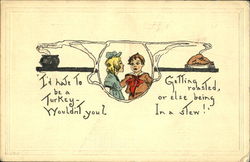 "I'd hate to
be a
Turkey—
Wouldn't you?
Getting
roasted,
or else being
In a stew!"